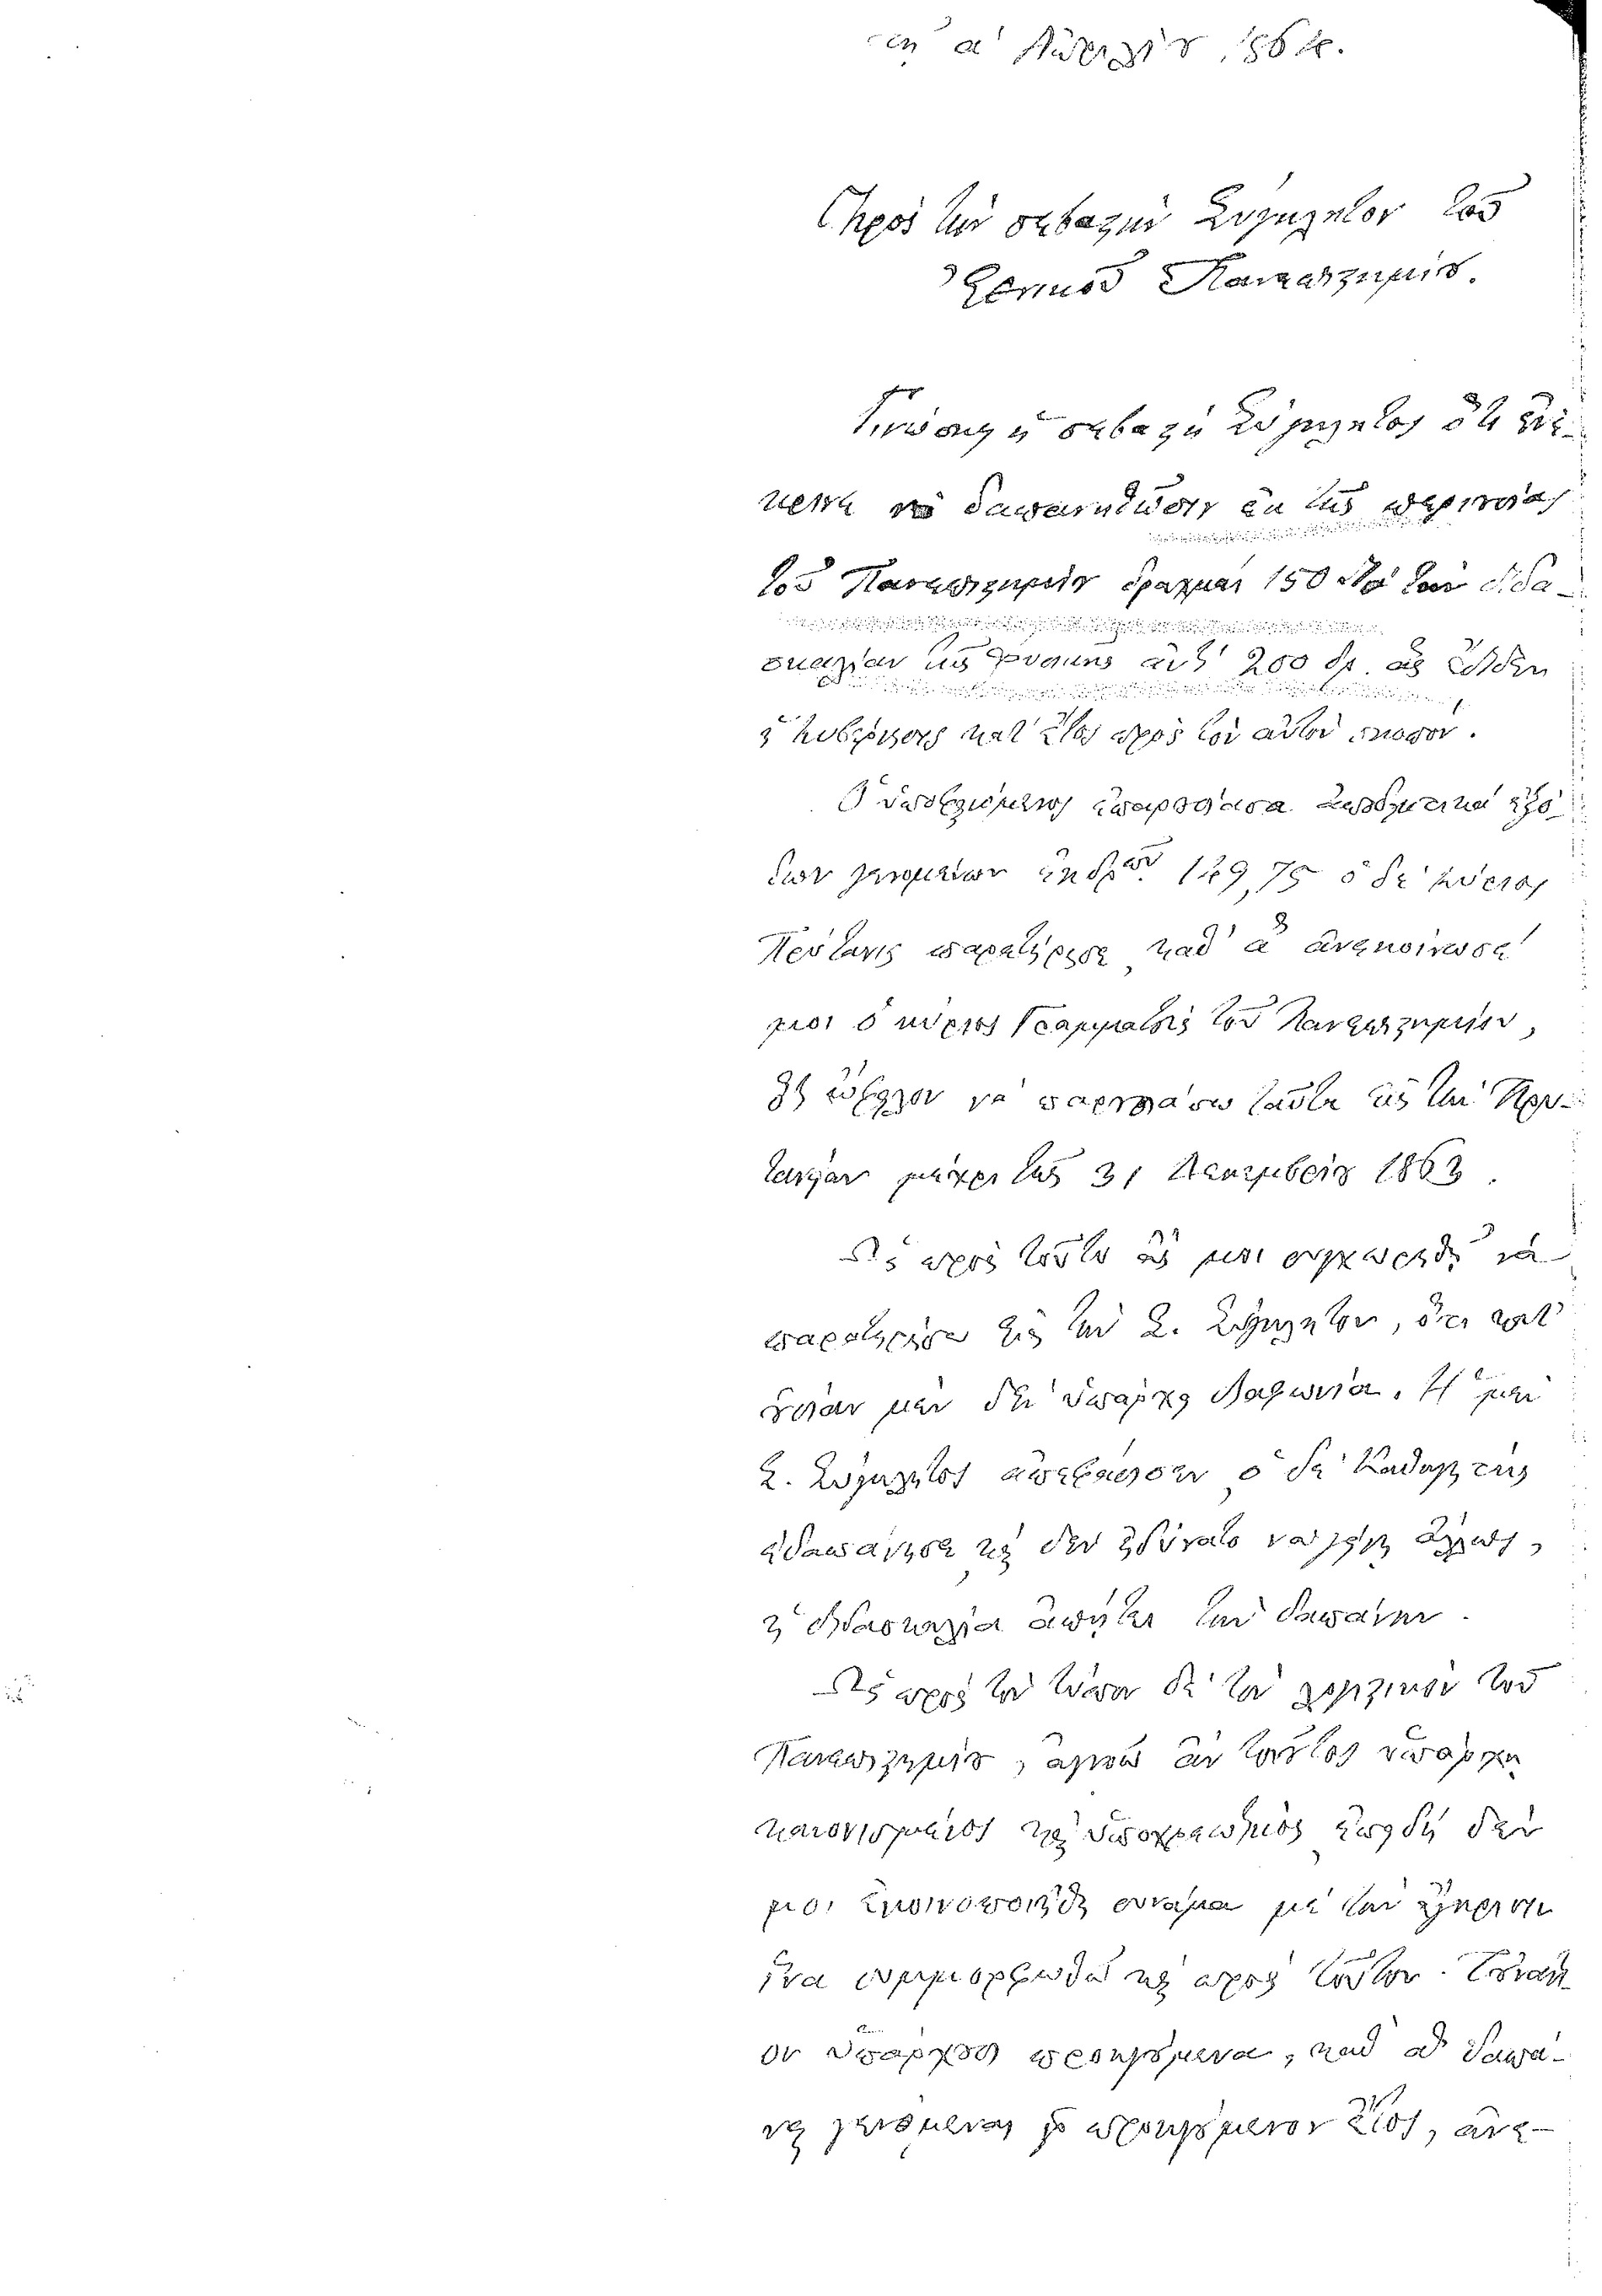 τῇ α' 1864.
Πρὸς τὴν σεβαστὴν Σύγκλητον τοῦ
Ἐθνικοῦ Πανεπιστημίου.
Γινώσκει ἡ σεβαστὴ Σύγκλητος ὅτι ἐνέ-
κρινε νὰ δαπανηθῶσιν ἐκ τῆς περιουσίας
τοῦ Πανεπιστημίου δραχμαὶ 150 διὰ τὴν διδα-
σκαλίαν τῆς Φυσικῆς ἀνθ' 200 δρ. ἃς ἔδιδεν
ἡ Κυβέρνησις κατ' ἔτος πρὸς τὸν αὐτὸν σκοπόν.
Ὁ ὑποφαινόμενος ἐπαρουσίασα ἀποδεικτικὰ ἐξό-
δων γενομένων ἐκ δρχ. 149,75 ὁ δὲ κύριος
Πρύτανις παρετήρησε, καθ' ἃ ἀνεκοίνωσέ
μοι ὁ κύριος Γραμματεὺς τοῦ Πανεπιστημίου,
ὅτι ὤφειλον νὰ παρουσιάσω ταῦτα εἰς τὴν Πρυ-
τανείαν μέχρι τῆς 31 Δεκεμβρίου 1863.
Ὡς πρὸς τοῦτο ἂς μοι συγχωρηθῇ νὰ
παρατηρήσω εἰς τὴν Σ. Σύγκλητον, ὅτι κατ'
οὐσίαν μὲν δὲν ὑπάρχει διαφωνία. Ἡ μὲν
Σ. Σύγκλητος ἀπεφάσισεν ὁ δὲ Καθηγητὴς
ἐδαπάνησε καὶ δὲν ἠδύνατο νὰ γίνῃ ἄλλως,
ἡ διδασκαλία ἀπῄτει τὴν δαπάνην.
Ὡς πρὸς τὸν τύπον δὲ τὸν λογιστικὸν τοῦ
Πανεπιστημίου, ἀγνοῶ ἂν τοιοῦτος ὑπάρχῃ
κανονισμένος καὶ ὑποχρεωτικὸς ἐπειδὴ δὲν
μοι ἐκοινοποιήθη συνάμα μὲ τὴν ἔγκρισιν
ἵνα συμμορφωθῶ καὶ πρὸς τοῦτον. Τοὐναντί-
ον ὑπάρχουν προηγούμενα, καθ' ἃ δαπά-
ναι γενόμεναι τὸ προηγούμενον ἔτος, ἀνε-